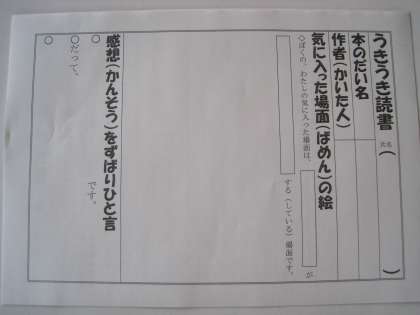 うきうき読書 氏名( )
本のだい名
作者(かいた人)
気に入った場面(ばめん)の絵
◇ぼくの、わたしの気に入った場面は、
が
する(している)場面です。
感想(かんそう)をずばりひと言
○ です。
○だって、
○